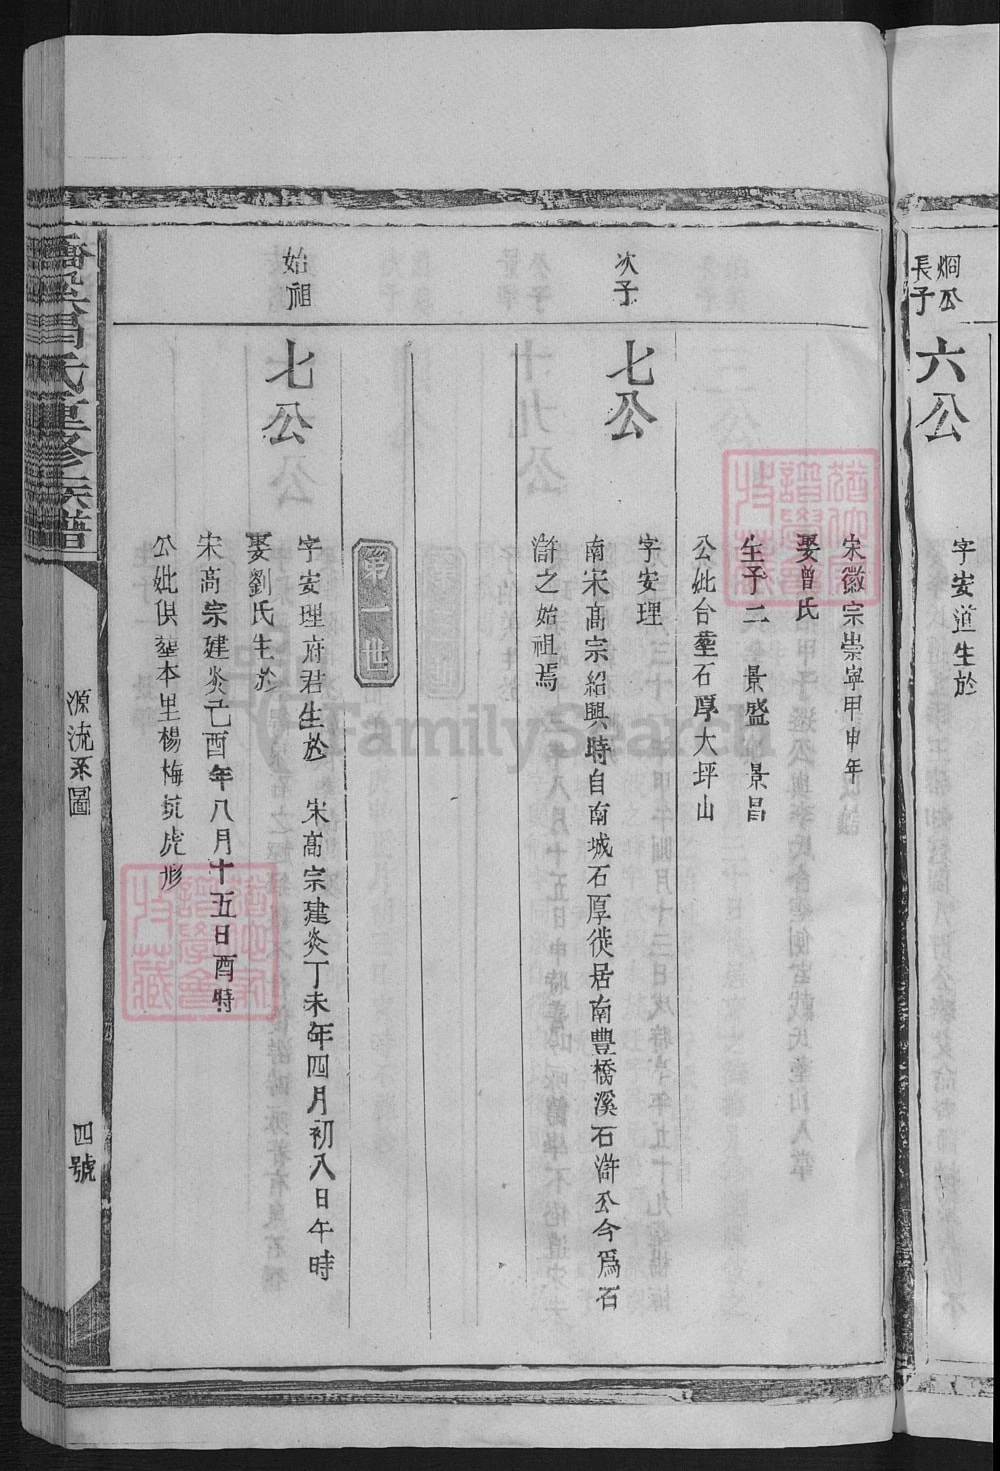 烱公
長子
六公
字安道生於
宋徽宗崇寧甲申年
娶曾氏
生子二 景盛 景昌
公妣合塟石厚大坪山
次子
七公
字安理
南宋髙宗紹興時自南城石厚徙居南豐橋溪石滸公今爲石
滸之始祖焉
第一世
始祖
七公
字安理府君生於 宋髙宗建炎丁未年四月初八日午時
娶劉氏生於
宋髙宗建炎己酉年八月十五日酉時
公妣俱塟本里楊梅坑虎形
氏重修族譜
源流系圖
四號
FamilySearch